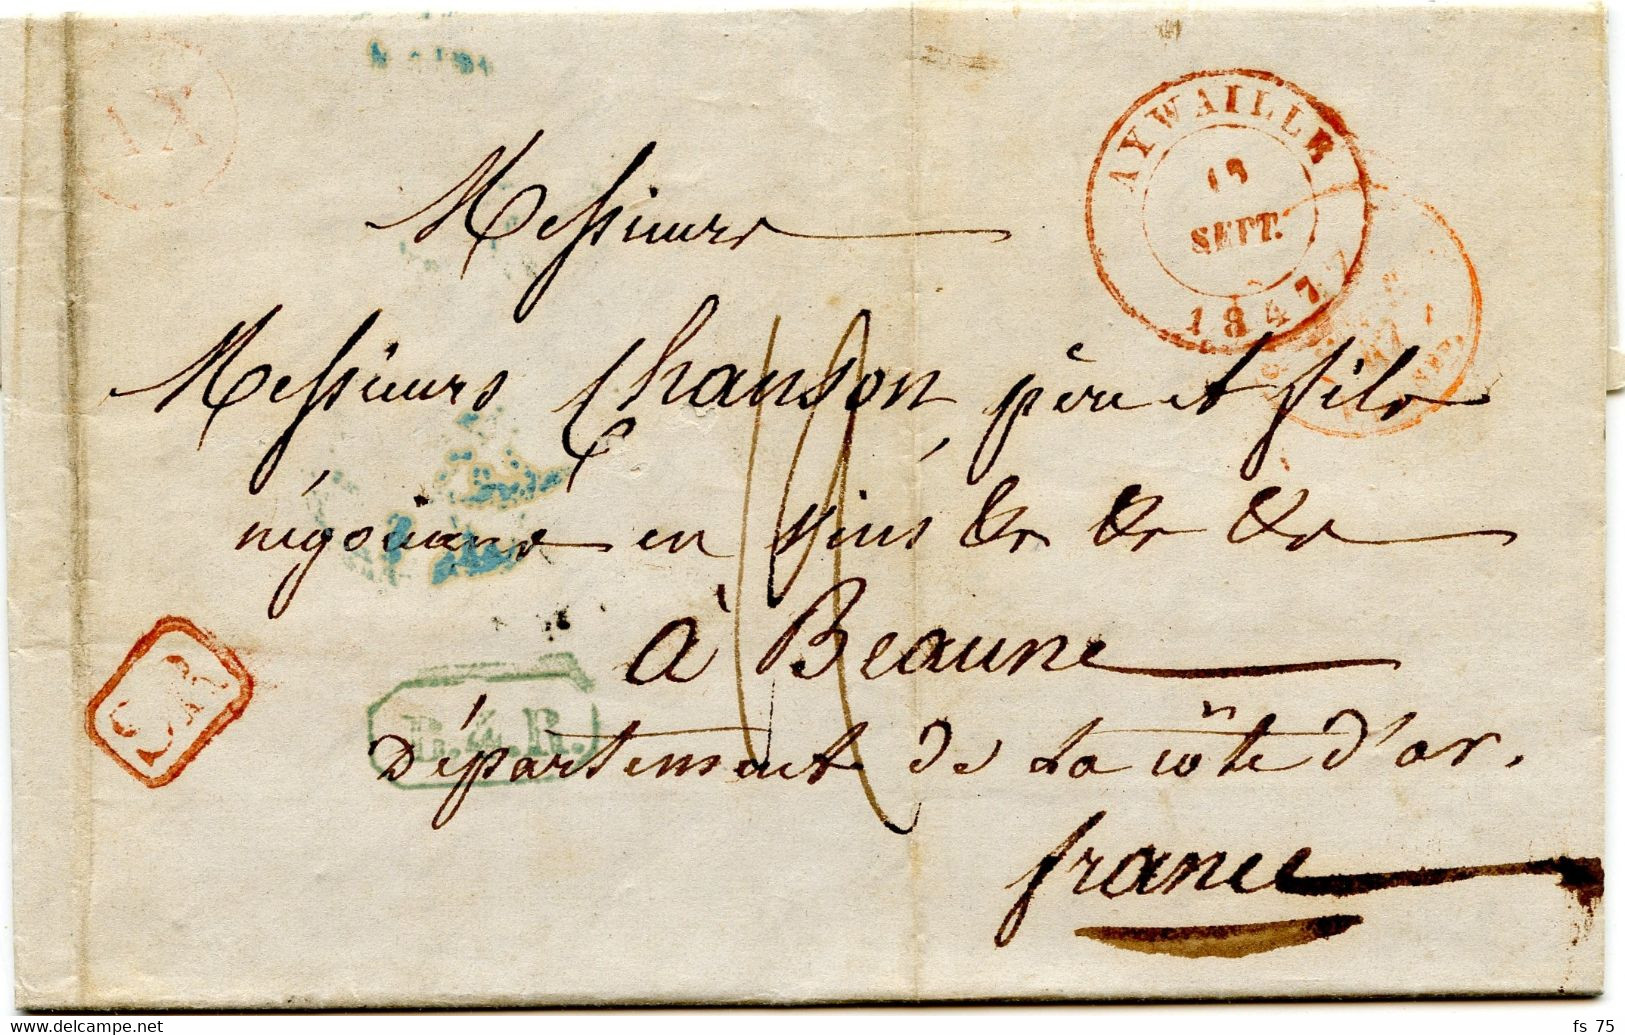 IX
AYWAILLE
18
SEPT.
1847
Messieurs
Messieurs Chanson, père et fils
négociants en vins &c &c &c
à Beaune
SR
B.4.R.
Département de la côte d'or.
france
www.delcampe.net
fs_75